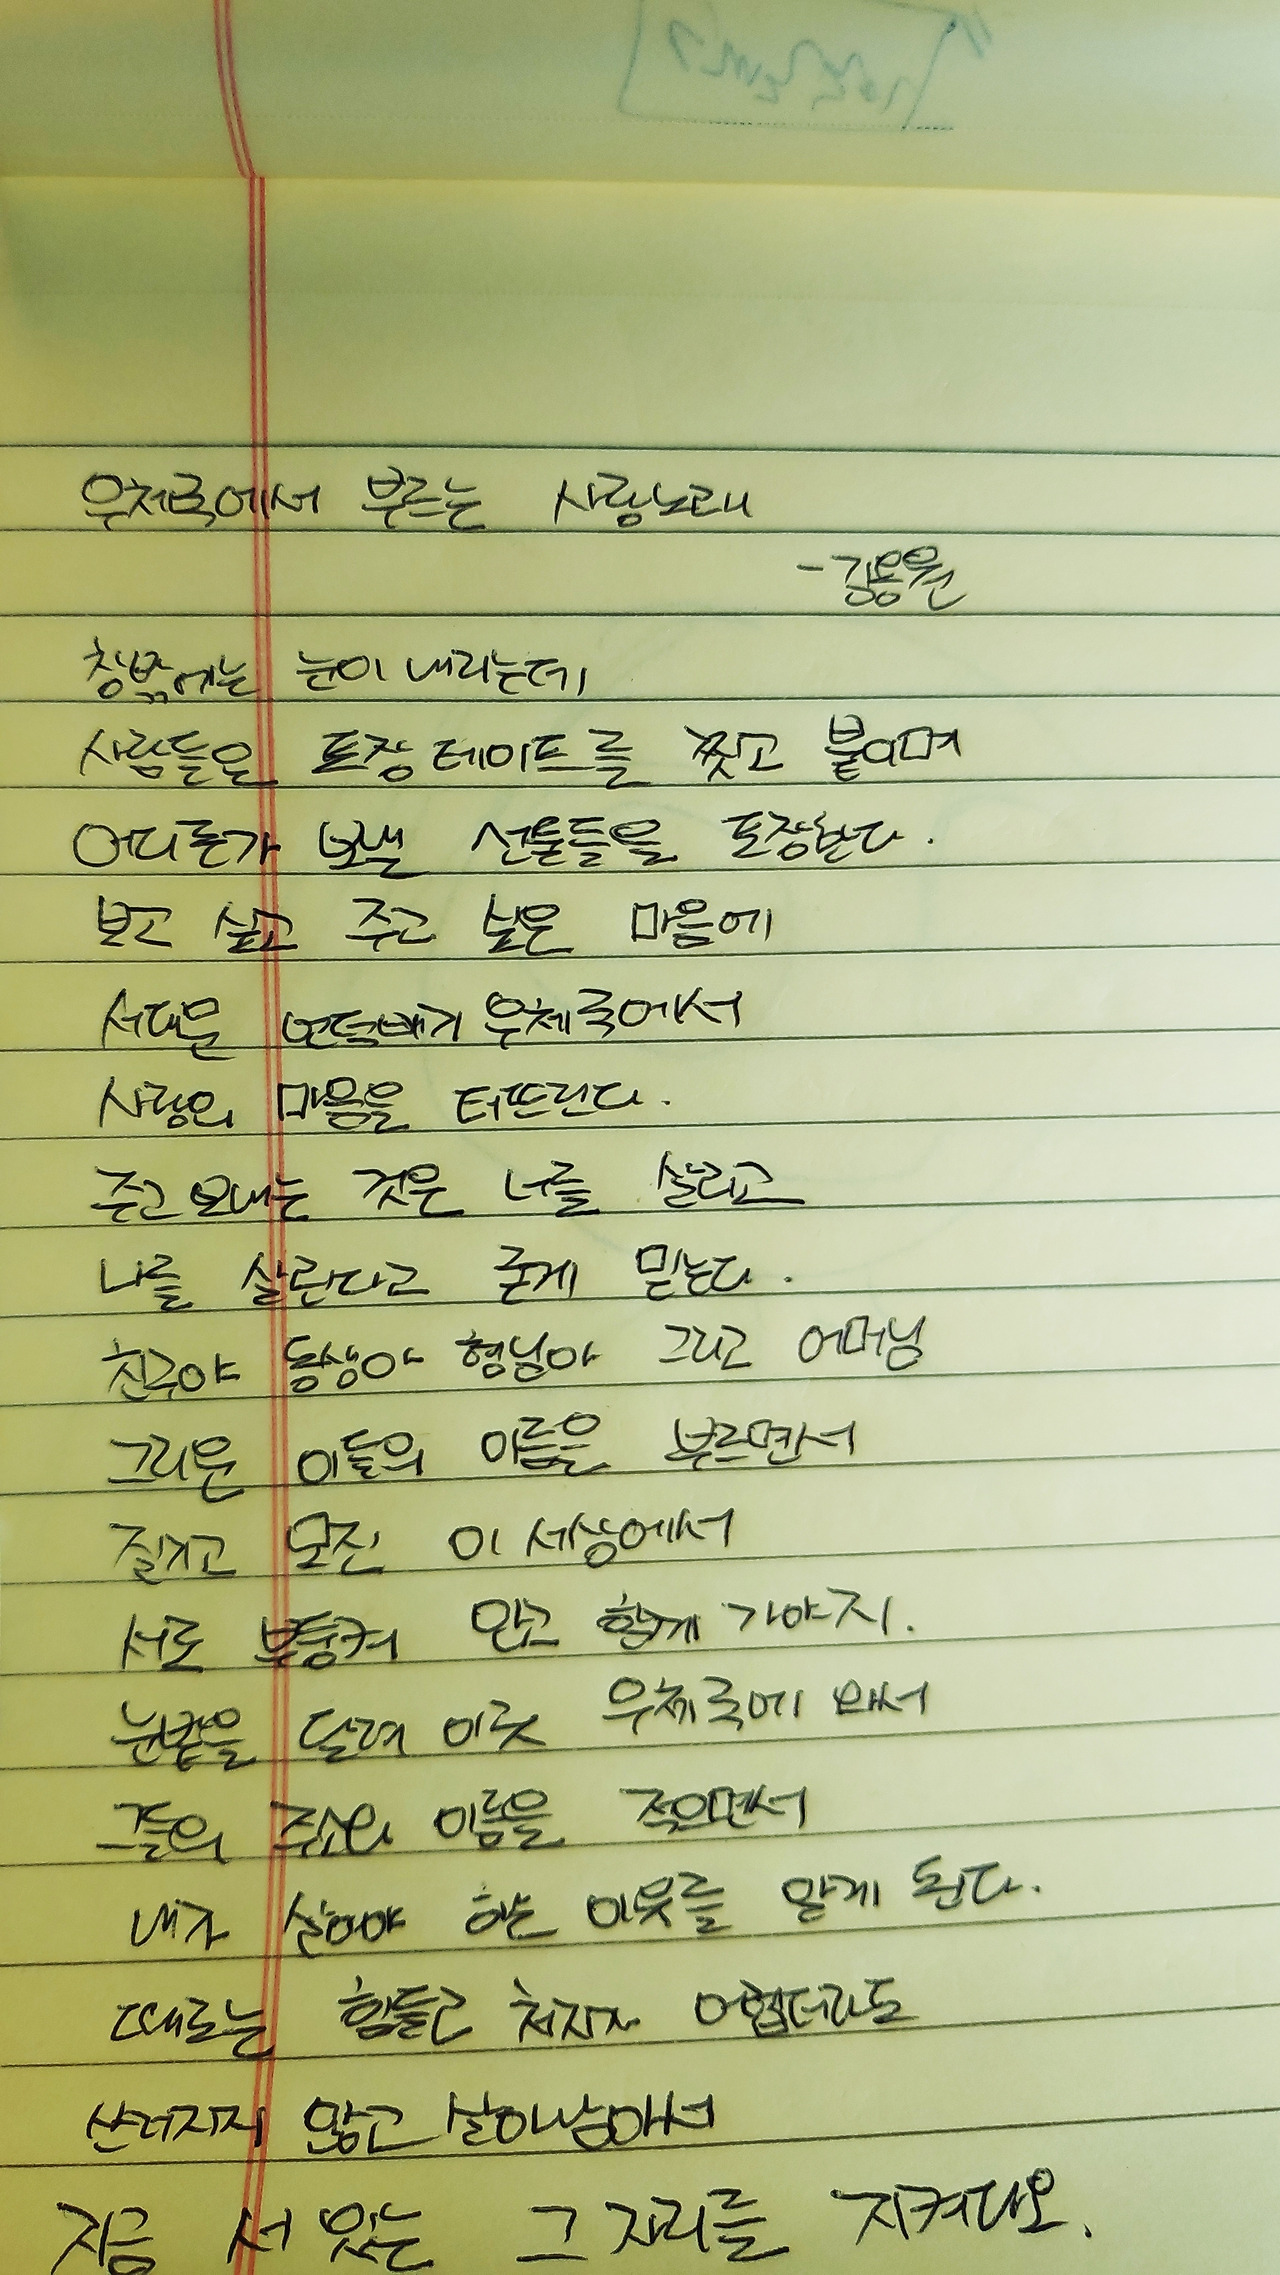 우체국에서 부르는 사랑노래
-김용원
창밖에는 눈이 내리는데
사람들은 포장 테이프를 찢고 붙이며
어디론가 보낼 선물들을 포장한다.
보고 싶고 주고 싶은 마음에
서대문 언덕배기 우체국에서
사랑의 마음을 터뜨린다.
주고 보내는 것은 너를 살리고
나를 살린다고 굳게 믿는다.
친구야 동생아 형님아 그리고 어머님
그리운 이들의 이름을 부르면서
질기고 모진 이 세상에서
서로 부둥켜 안고 함께 가야지.
눈밭을 달려 이곳 우체국에 와서
그들의 주소와 이름을 적으면서
내가 살아야 하는 이유를 알게 된다.
때로는 힘들고 처지가 어렵더라도
쓰러지지 않고 살아남아서
지금 서 있는 그 자리를 지켜다오.